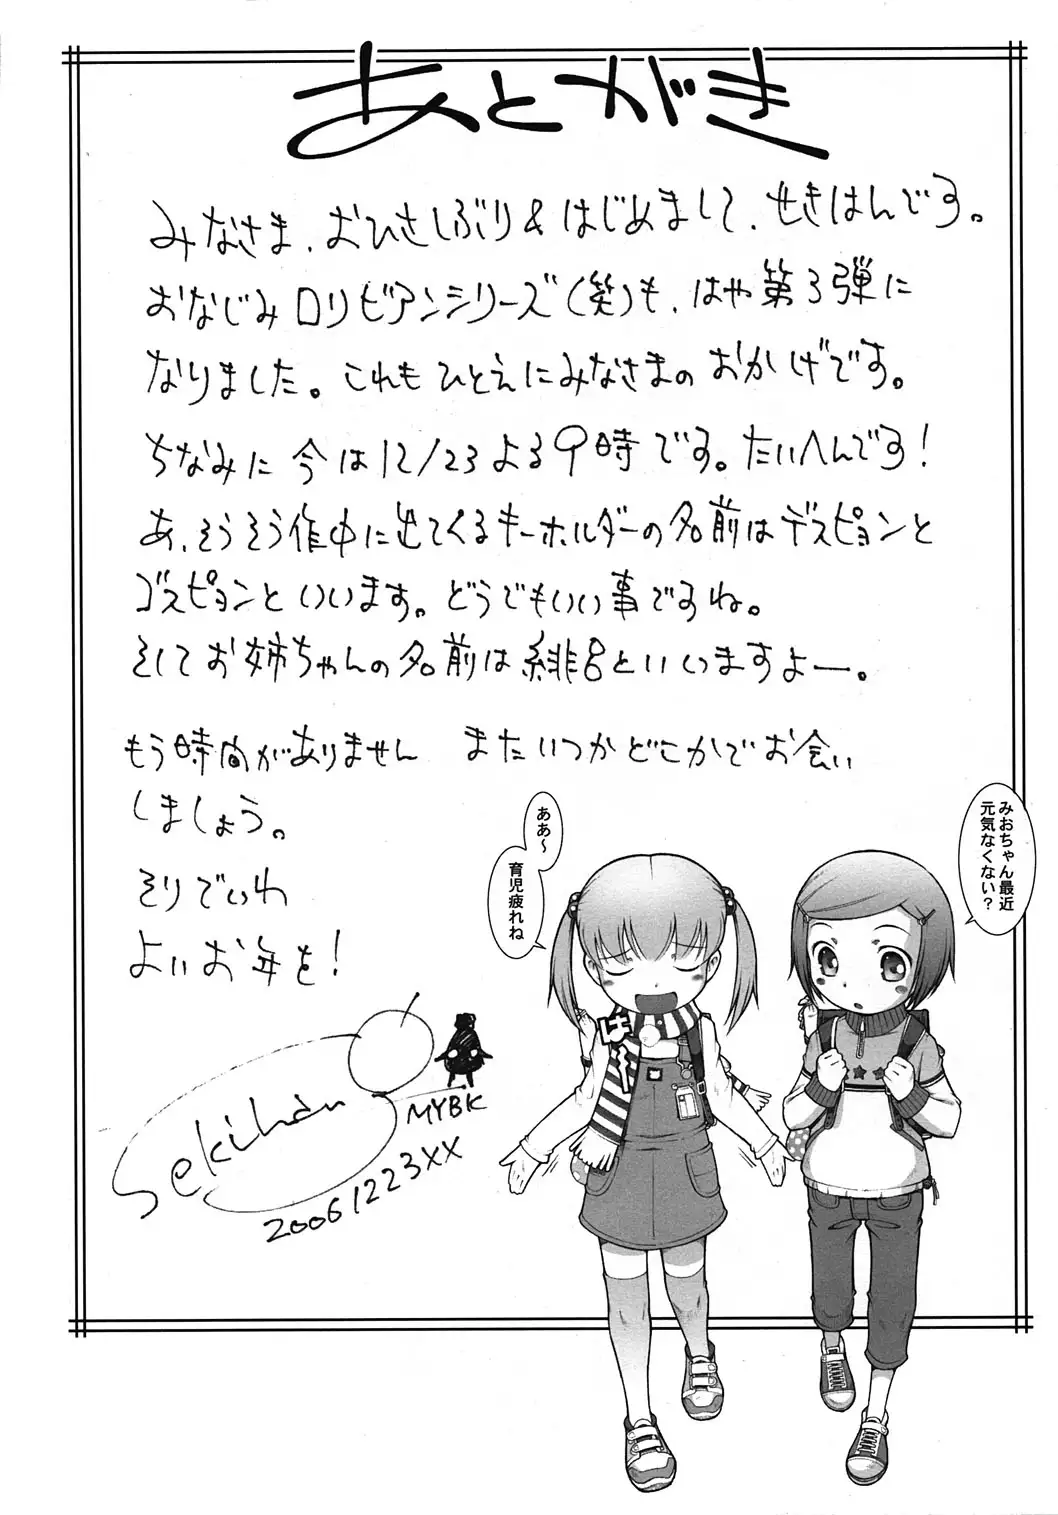 あとがき
みなさま、おひさしぶり&はじめまして、せきはんです。
おなじみロリビアンシリーズ(笑)も、はや第3弾に
なりました。これもひとえにみなさまのおかげです。
ちなみに今は12/23よる9時です。たいへんです!
あ、そうそう作中に出てくるキーホルダーの名前はデスピョンと
ゴスピョンといいます。どうでもいい事ですね。
そしてお姉ちゃんの名前は緋呂といいますよー。
もう時間がありません またいつかどこかでお会い
しましょう。
そりでいわ
よいお年を!
みおちゃん最近
元気なくない?
ああ~
育児疲れね
は~
Sekihan
MYBK
20061223XX